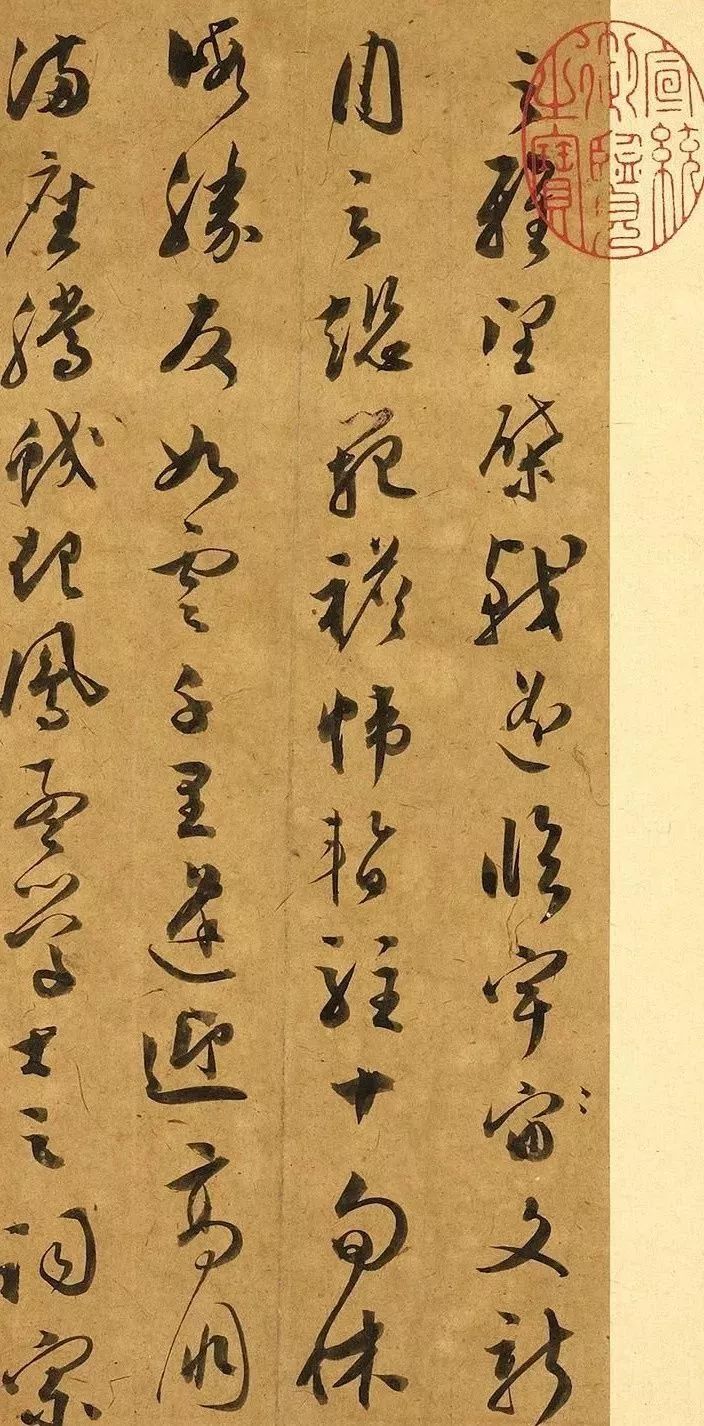 宣統御覽之寶
之雅望棨戟遙臨宇宙文新
州之懿範襜帷暫駐十旬休
暇勝友如雲千里逢迎高朋
滿座騰蛟起鳳孟學士之詞宗